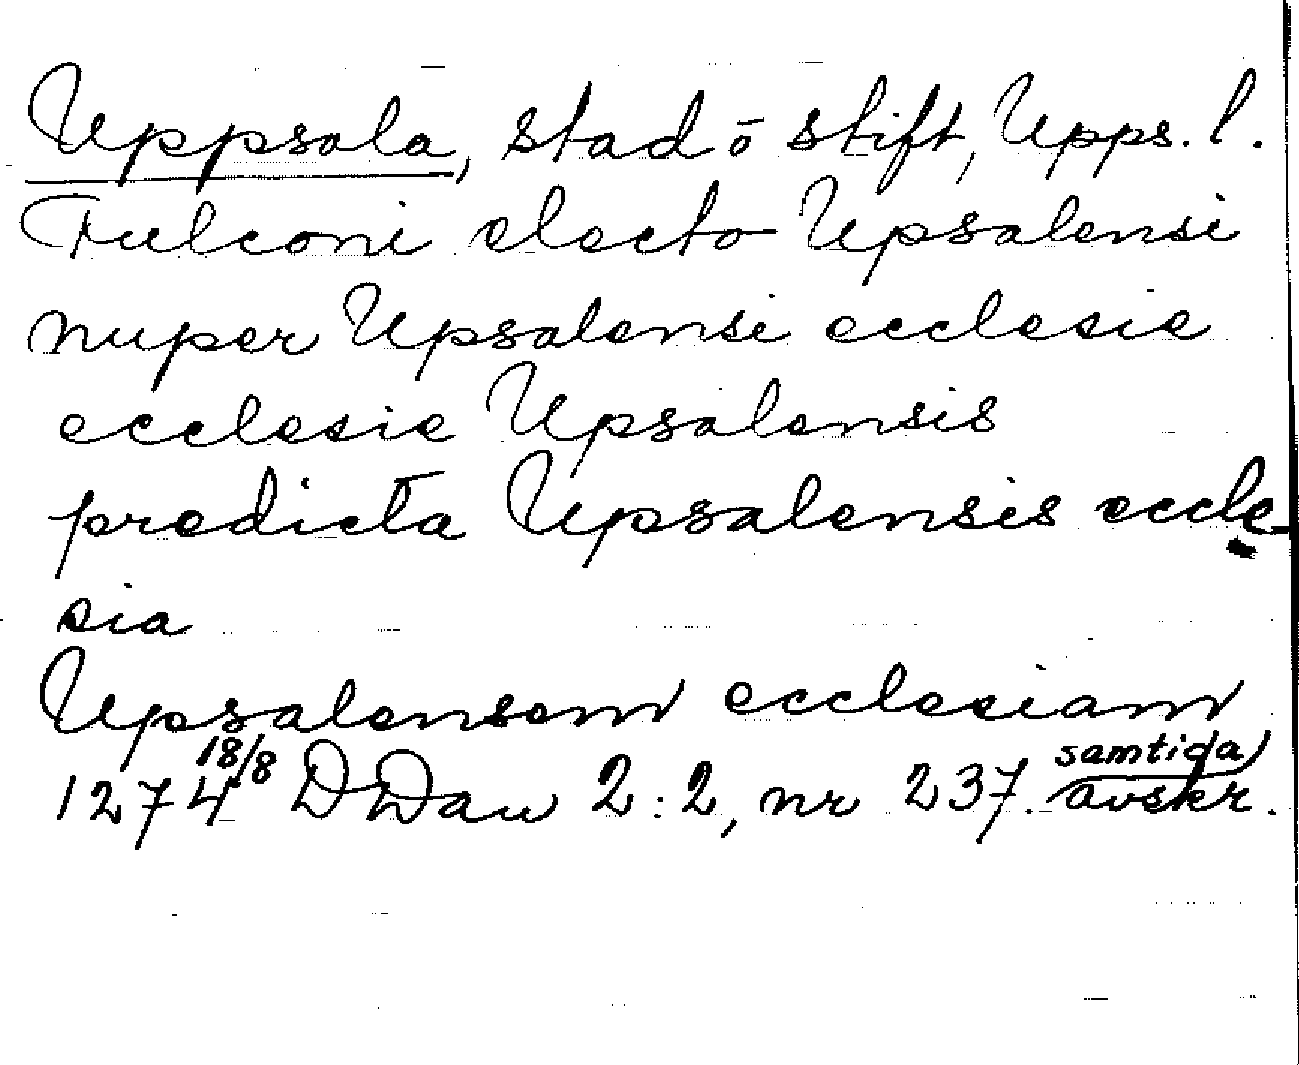 Uppsala, stad o stift, Upps. l.
Fulconi electo Upsalensi
nuper Upsalensi ecclesie
ecclesie Upsalensis
predicta Upsalensis eccle
sia
Upsalensem ecclesiam
1274 18/8 DDan 2:2, nr 237. samtida avskr.